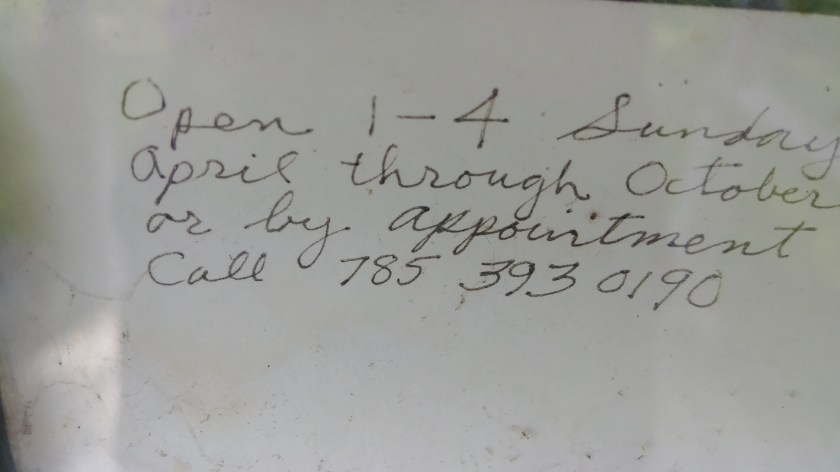 Open 1-4 Sunday
April through October
or by appointment
Call 785 393 0190